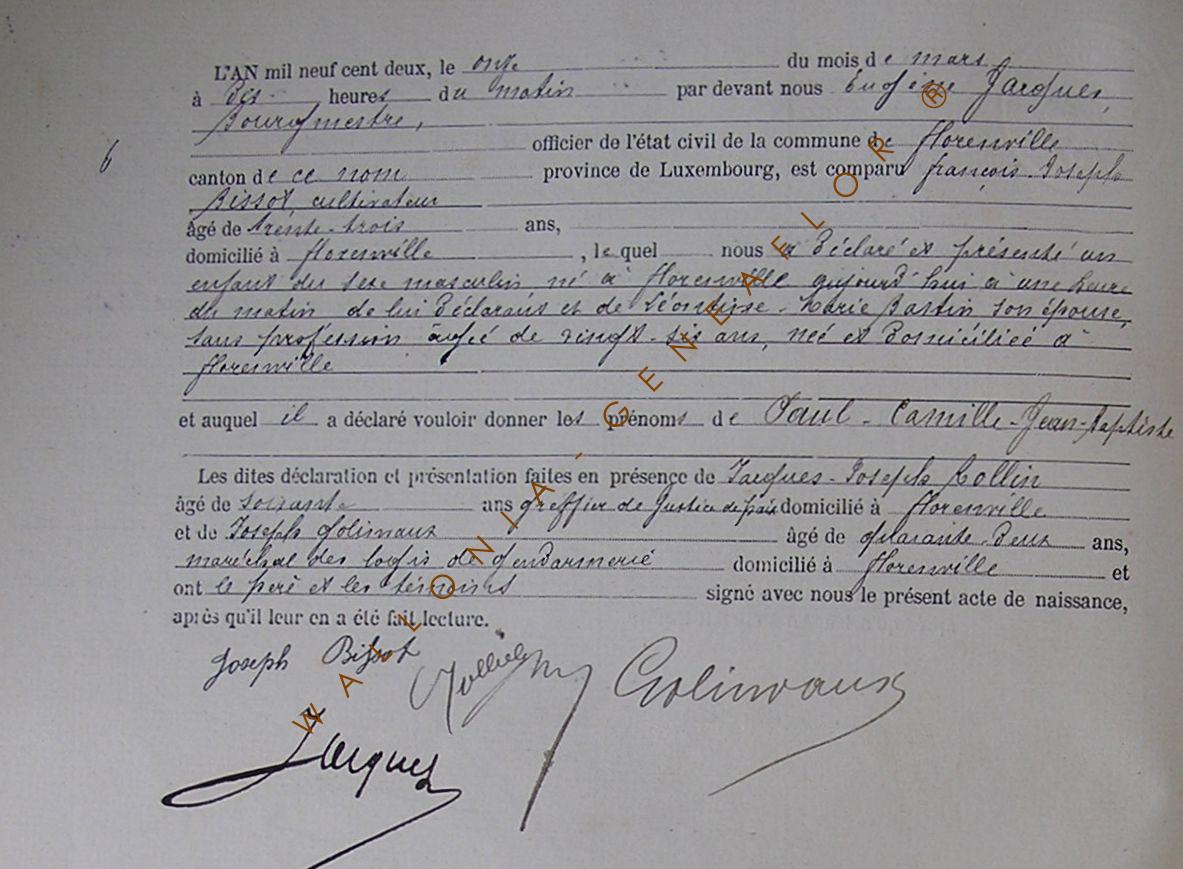 L'AN mil neuf cent deux, le onze du mois de mars
à dix heures du matin par devant nous Eugène Jacques,
Bourgmestre,
officier de l'état civil de la commune de florenville
6
canton de ce nom province de Luxembourg, est comparu françois-Joseph
Bissot, cultivateur
âgé de trente-trois ans,
domicilié à florenville, le quel nous a déclaré et présenté un
enfant du sexe masculin né à florenville aujourd'hui à une heure
du matin de lui déclarant et de Léontine-Marie Bastin son épouse,
sans profession âgée de vingt-six ans, née et domiciliée à
florenville
et auquel il a déclaré vouloir donner les prénoms de Paul-Camille-Jean-Baptiste
Les dites déclaration et présentation faites en présence de Jacques-Joseph Collin
âgé de soixante ans greffier de Justice de paix domicilié à florenville
et de Joseph Golinvaux âgé de quarante-deux ans,
maréchal des logis de gendarmerie domicilié à florenville et
ont le père et les témoins signé avec nous le présent acte de naissance,
après qu'il leur en a été fait lecture.
Joseph Bissot Golinvaux
Jacques
WALLONIA-GENEAELOR ®